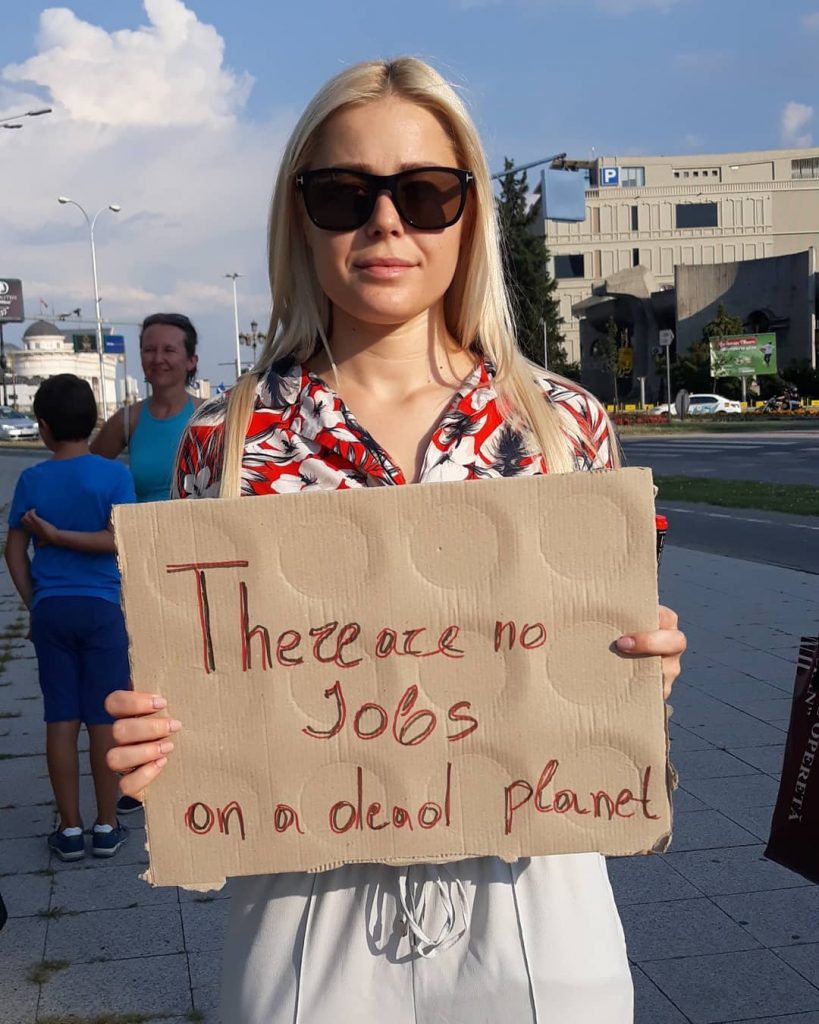 P
There are no
Jobs
on a dead planet
OPERETÁ